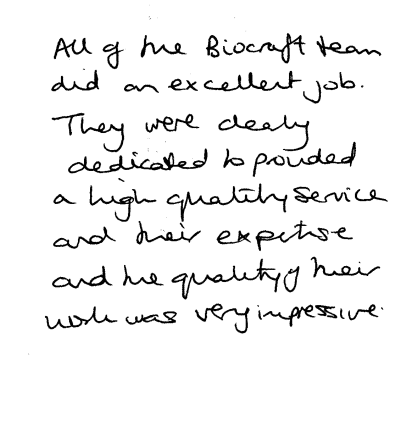 All of the Biocraft team
did an excellent job.
They were clearly
dedicated to provided
a high quality service
and their expertise
and the quality of their
work was very impressive.